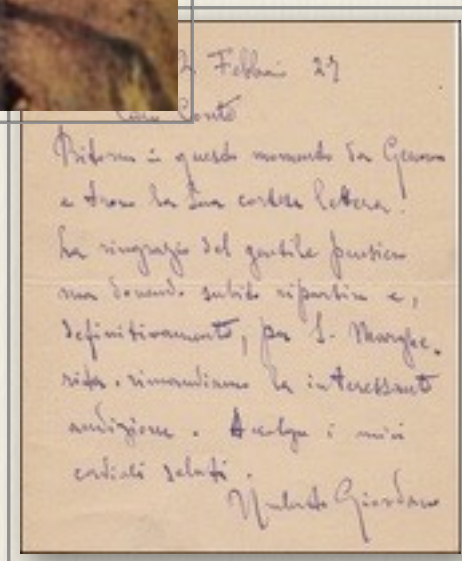 2 Febbraio 27
Caro Conte
Ritorno in questo momento da Genova
e trovo la Sua cortese lettera.
La ringrazio del gentile pensiero
ma dovendo subito ripartire e,
definitivamente, per S. Marghe-
rita, rimandiamo la interessante
audizione. Accolga i miei
cordiali saluti.
Umberto Giordano